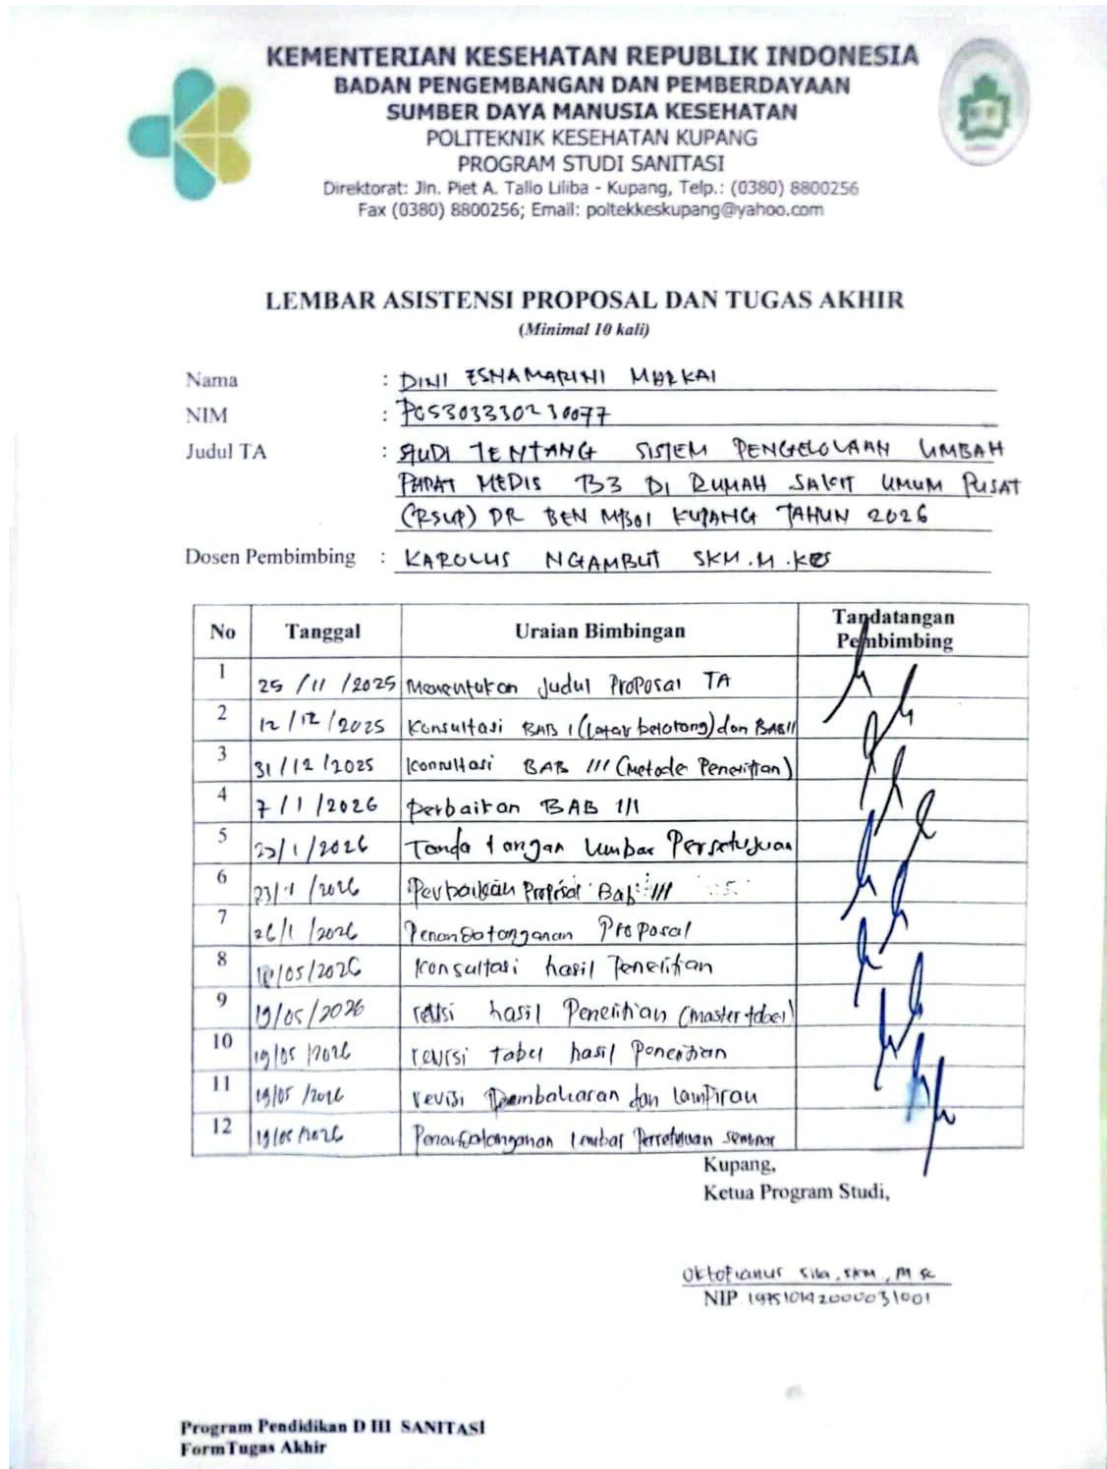 KEMENTERIAN KESEHATAN REPUBLIK INDONESIA
BADAN PENGEMBANGAN DAN PEMBERDAYAAN
SUMBER DAYA MANUSIA KESEHATAN
POLITEKNIK KESEHATAN KUPANG
PROGRAM STUDI SANITASI
Direktorat: Jln. Piet A. Tallo Liliba - Kupang, Telp.: (0380) 8800256
Fax (0380) 8800256; Email: poltekkeskupang@yahoo.com
LEMBAR ASISTENSI PROPOSAL DAN TUGAS AKHIR
(Minimal 10 kali)
Nama : DINI ESNAMARINI
NIM : PO5303330230077
Judul TA : STUDI TENTANG SISTEM PENGELOLAAN LIMBAH
PADAT MEDIS B3 DI RUMAH SAKIT UMUM PUSAT
(RSUP) DR BEN MBOI KUPANG TAHUN 2026
Dosen Pembimbing : KAROLUS NGAMBUT SKM.M.KES
No Tanggal Uraian Bimbingan Tandatangan Pembimbing
1 25/11/2025 Menentukan Judul Proposal TA
2 12/12/2025 Konsultasi BAB I (Latar belakang) dan BAB II
3 31/12/2025 Konsultasi BAB III (Metode Penelitian)
4 7/1/2026 perbaikan BAB III
5 /1/2026 Tanda tangan Lembar Persetujuan
6 23/1/2026 Perbaikan Proposal Bab III
7 26/1/2026 Penandatanganan Proposal
8 /05/2026 Konsultasi hasil Penelitian
9 19/05/2026 revisi hasil Penelitian (master tabel)
10 19/05/2026 revisi tabel hasil Penelitian
11 19/05/2026 revisi Pembahasan dan Lampiran
12 19/05/2026 Penandatanganan Lembar Persetujuan Seminar
Kupang,
Ketua Program Studi,
Oktofianus Sila, SKM, M Sc
NIP 197510142000031001
Program Pendidikan D III SANITASI
FormTugas Akhir